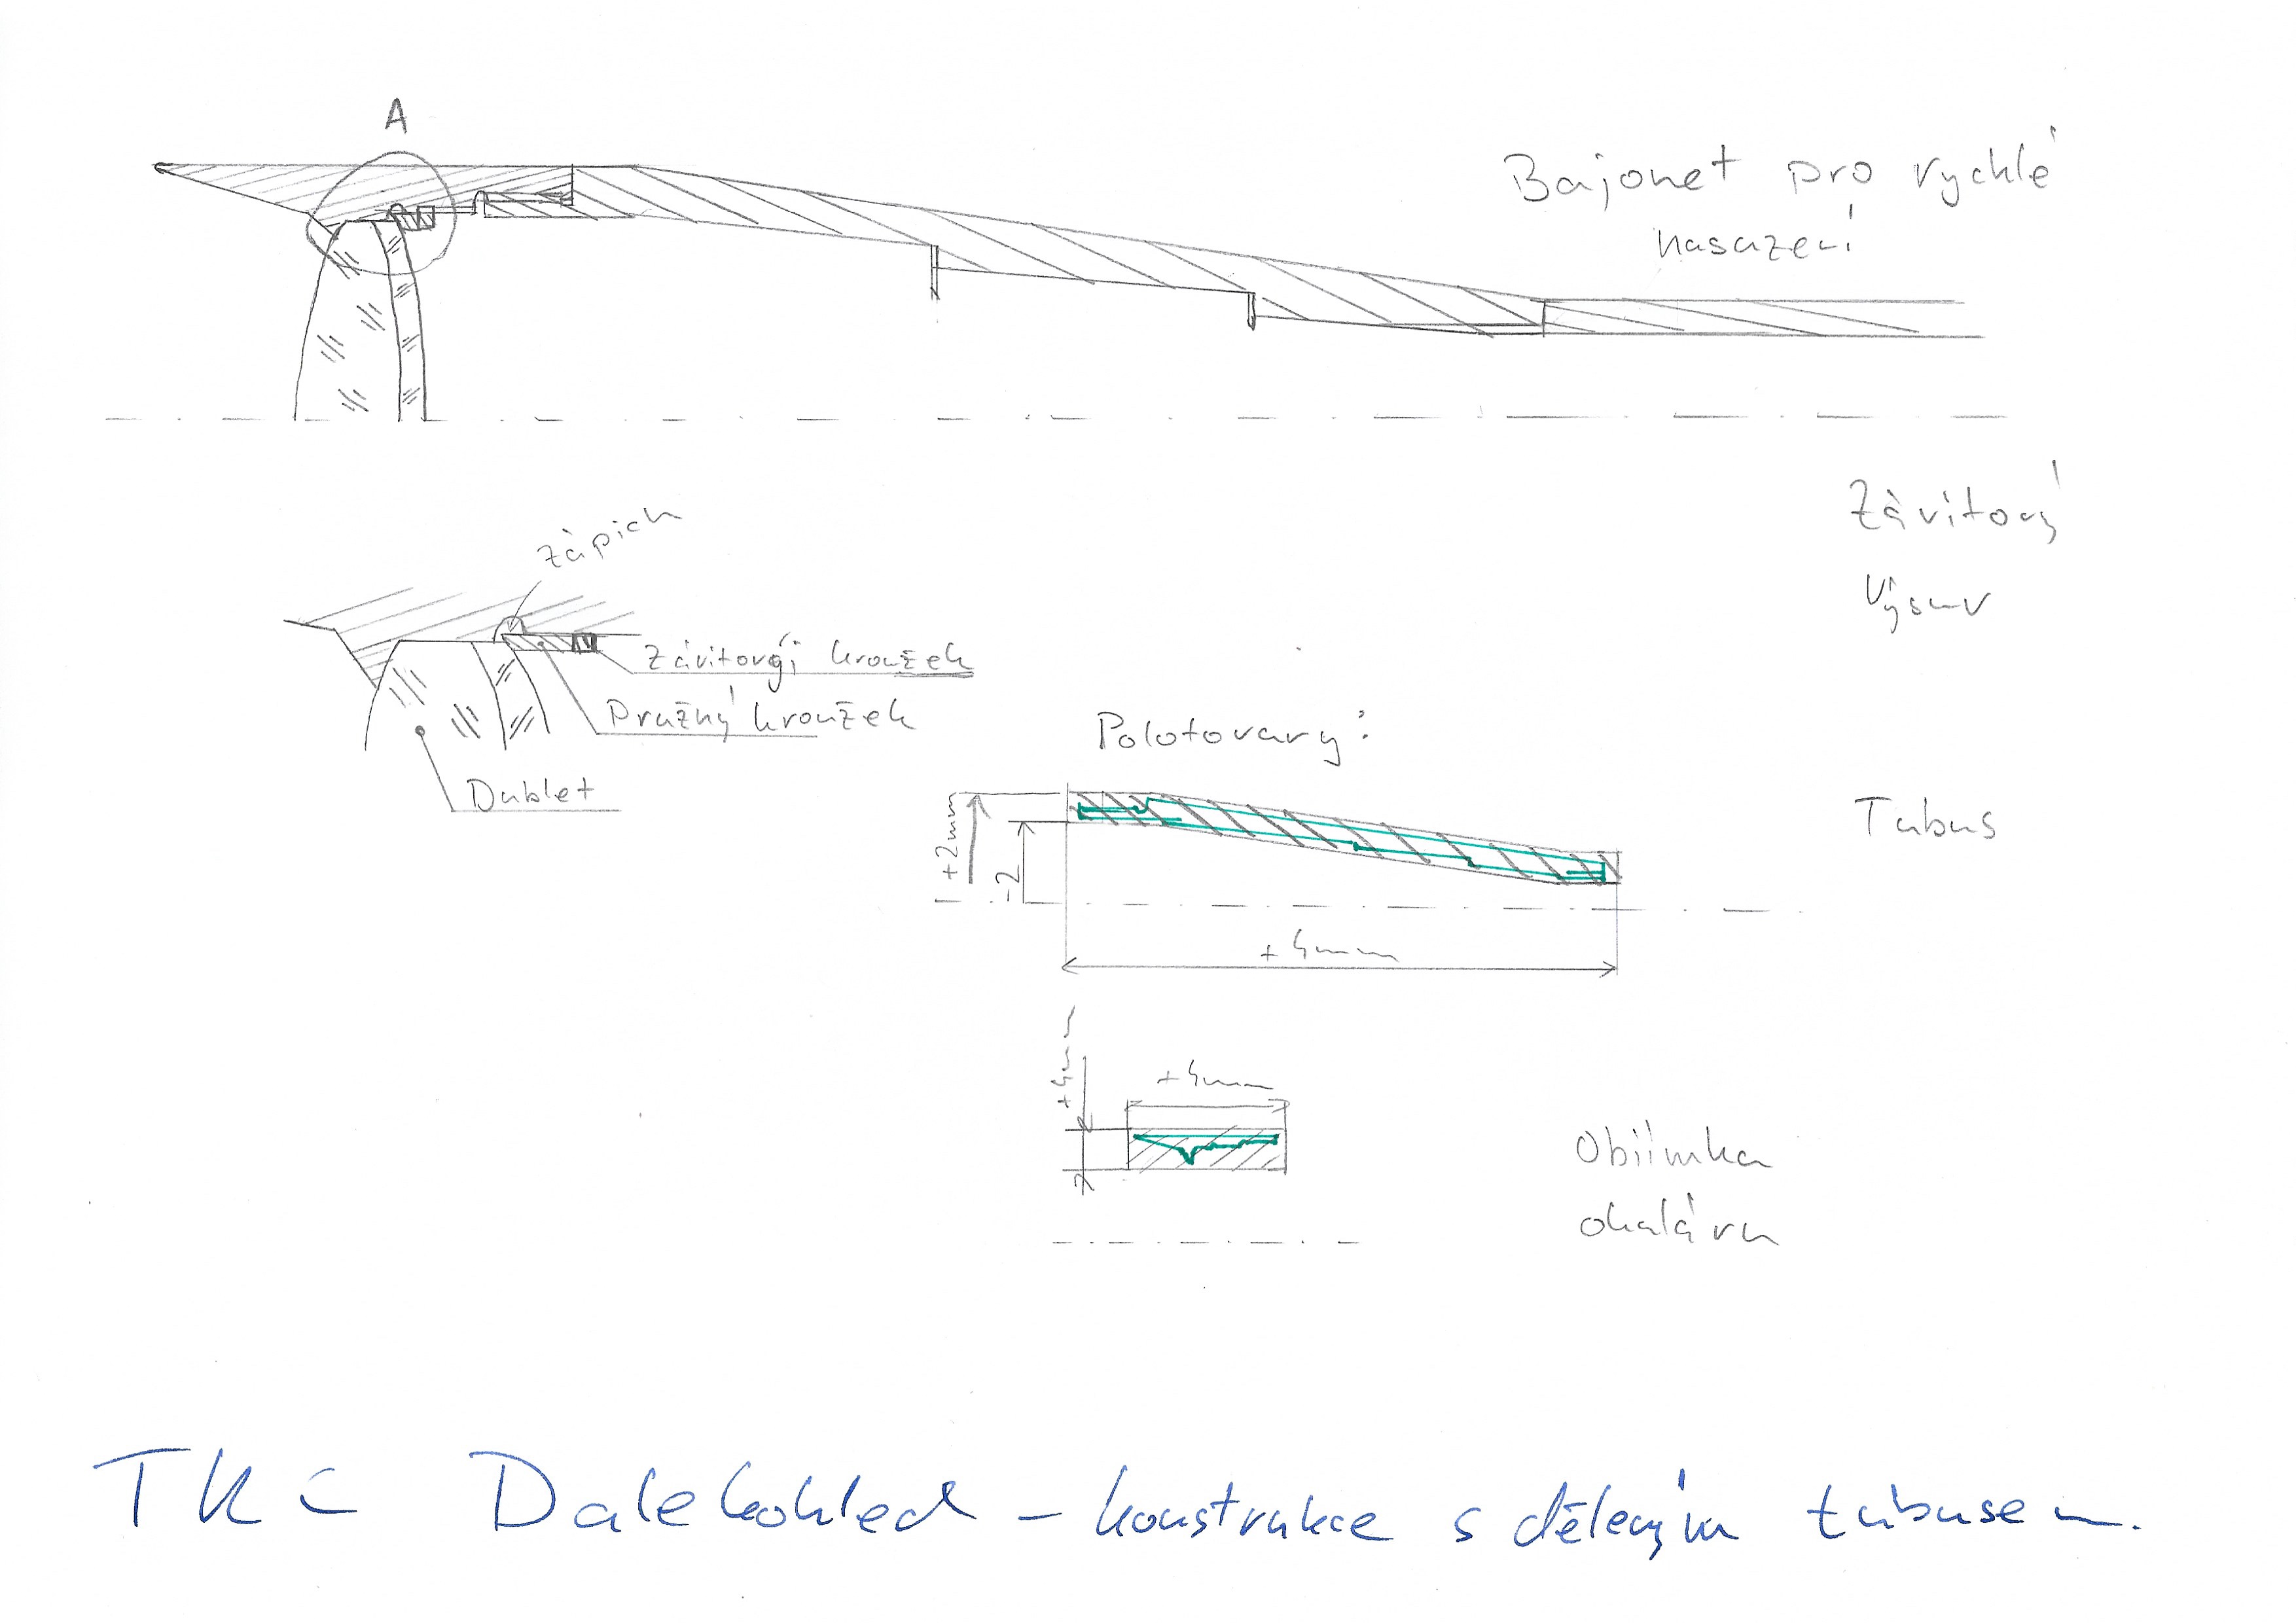 A
Bajonet pro rychlé
nasazení
Závitový
Výsuv
zápich
Závitový kroužek
Pružný kroužek
Dublet
Polotovary:
+2mm
-2
+4mm
Tubus
+4mm
+4mm
Obiímka
okuláru
Dalekohled - konstrukce s děleným tubusem.